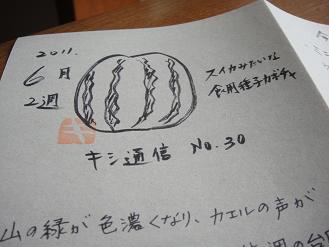 2011.
6月
2週
スイカみたいな
食用種子カボチャ
キ
キシ通信 No.30
山の緑が色濃くなり、カエルの声が